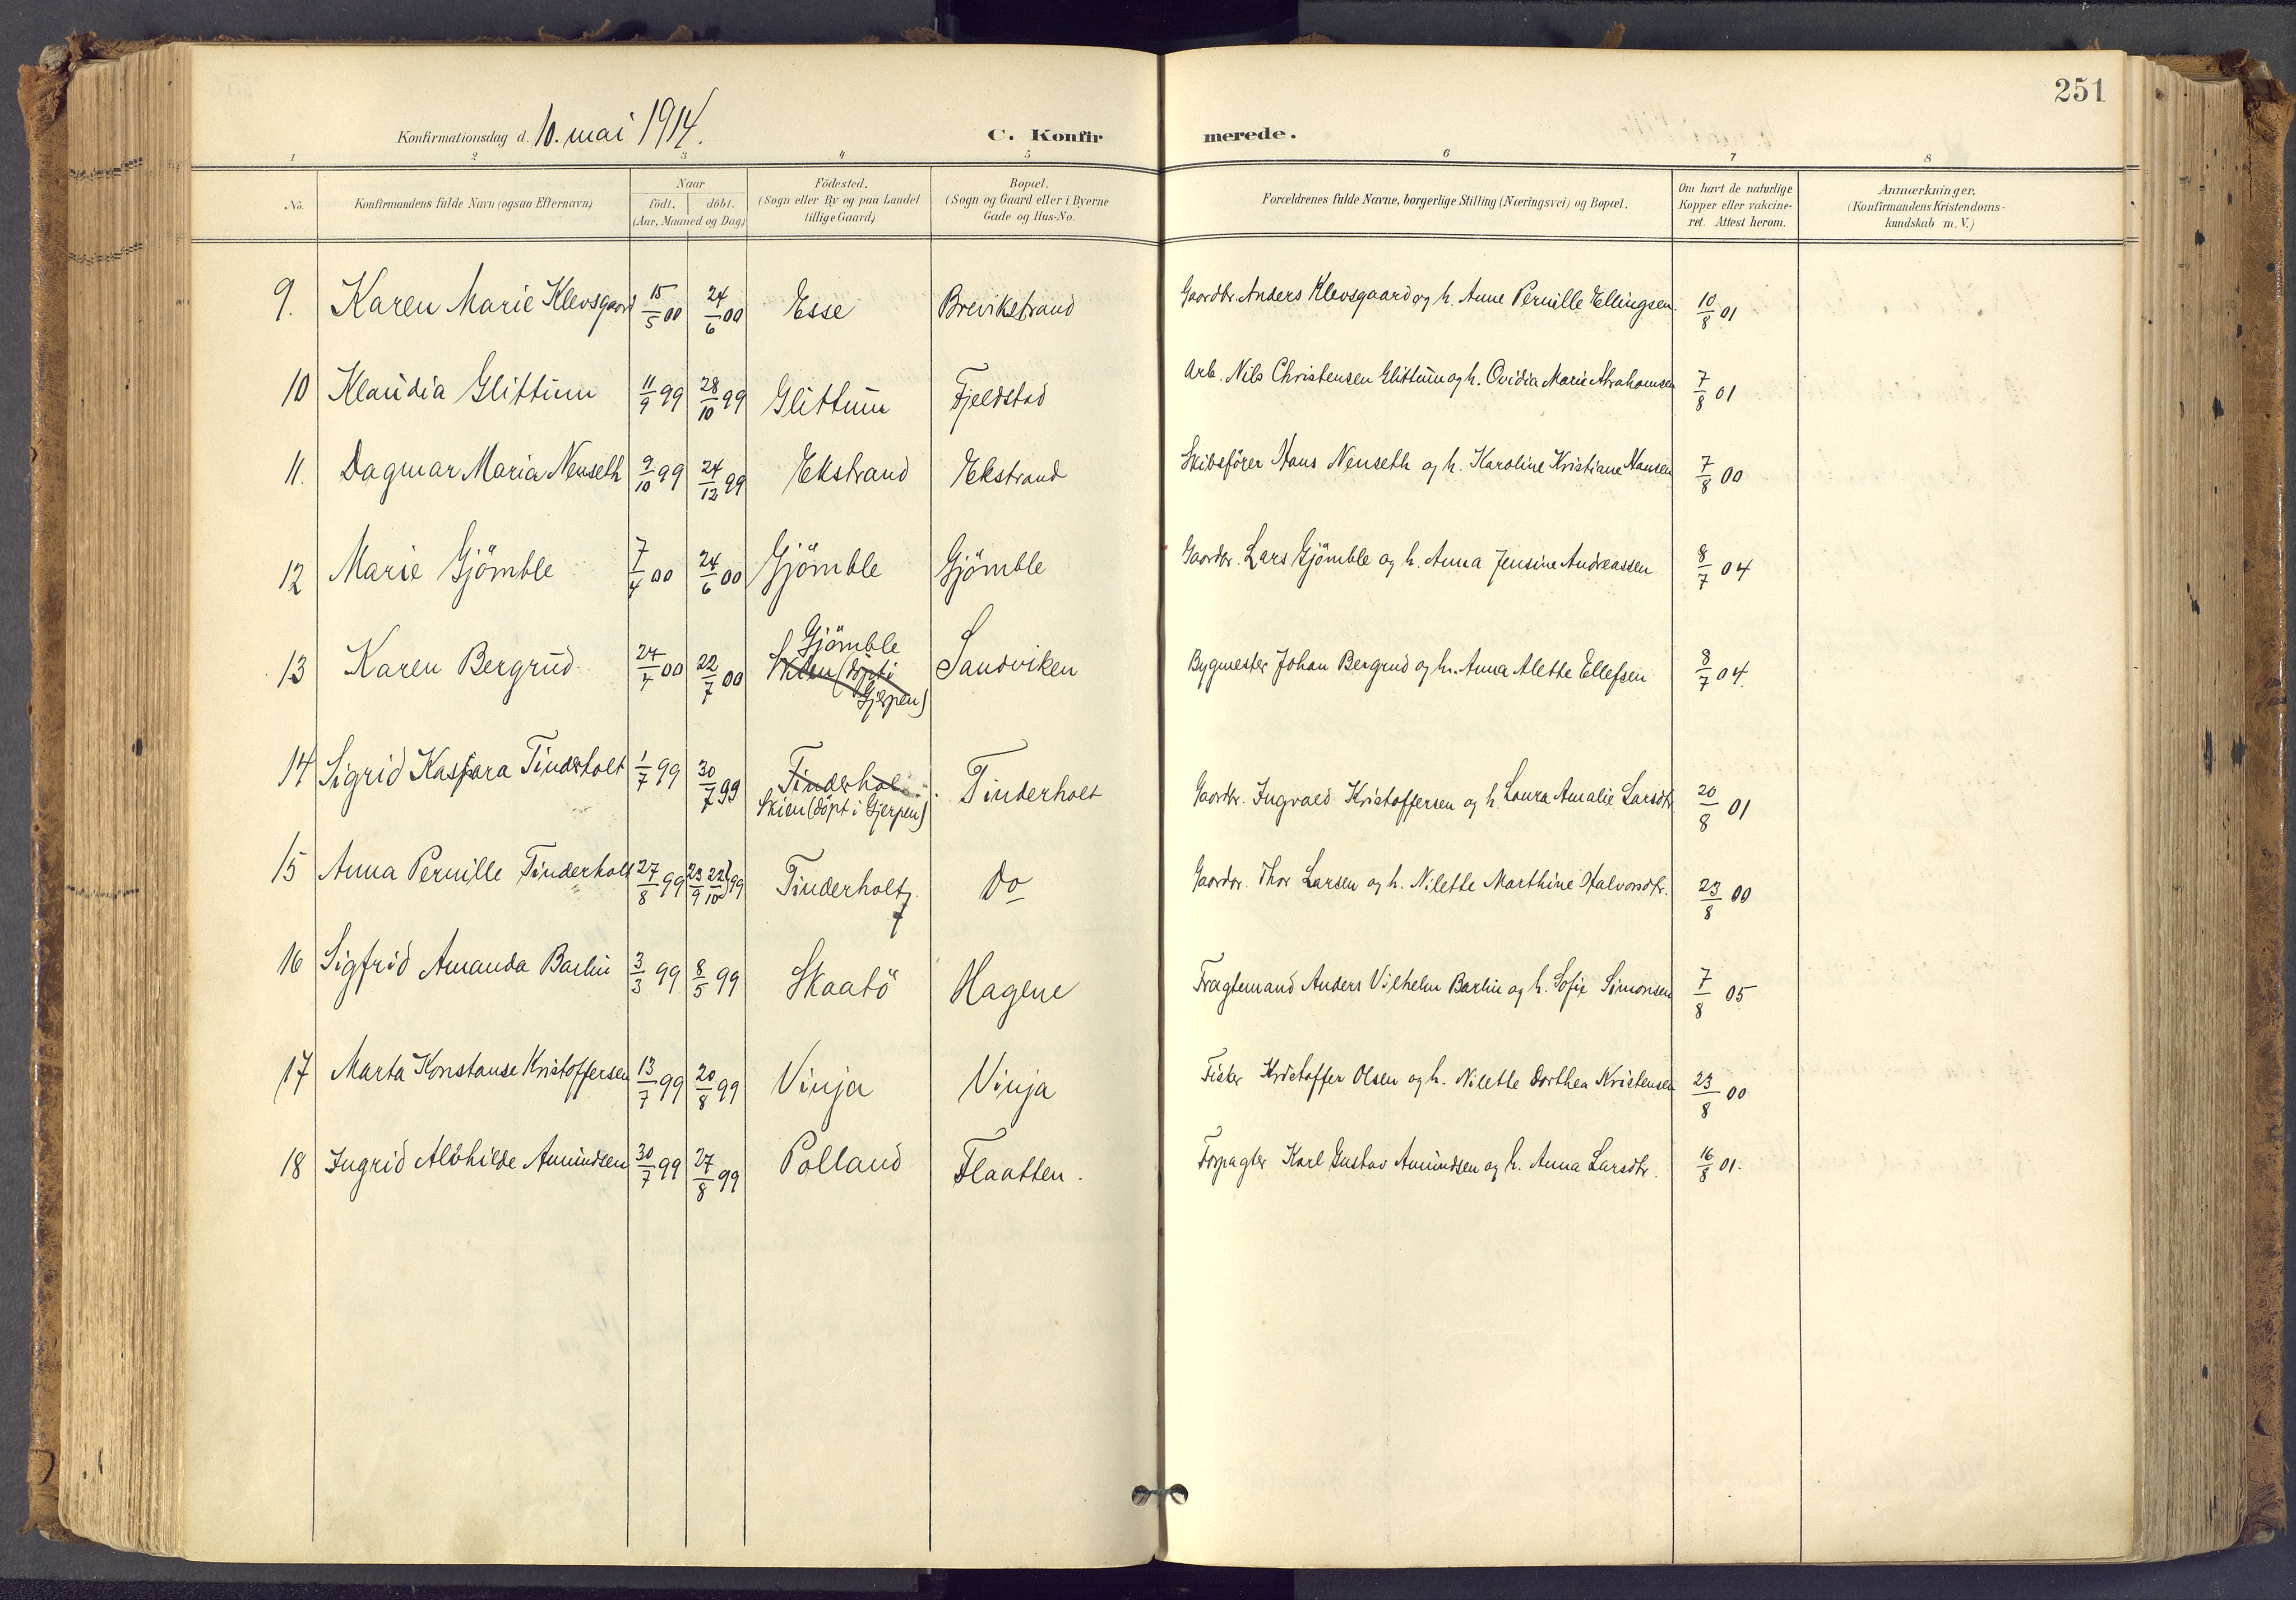 251
Konfirmationsdag d. 10. mai 1914.
C. Konfirmerede.
1 2 3 4 5 6 7 8
No.
Konfirmandens fulde Navn (ogsaa Efternavn)
Naar
födt. döbt.
(Aar, Maaned og Dag)
Födested.
(Sogn eller By og paa Landet
tillige Gaard)
Bopæl.
(Sogn og Gaard eller i Byerne
Gade og Hus-No.
Forældrenes fulde Navne, borgerlige Stilling (Næringsvei) og Bopæl.
Om havt de naturlige
Kopper eller vakcine-
ret. Attest herom.
Anmærkninger.
(Konfirmandens Kristendoms-
kundskab m. V.)
9. Karen Marie Klevsgaard 15/5 00 24/6 00 Esse Brevikstrand Gaardbr. Anders Klevsgaard og h. Anne Pernille Ellingsen. 10/8 01
10 Klaudia Glittum 11/9 99 28/10 99 Glittum Fjeldstad Arb. Nils Christensen Glittum og h. Ovidia Marie Abrahamsen 7/8 01
11. Dagmar Maria Nenseth 9/10 99 24/12 99 Ekstrand Ekstrand Skibsfører Hans Nenseth og h. Karoline Kristiane Hansen 7/8 00
12 Marie Gjömble 7/4 00 24/6 00 Gjömble Gjömble Gaardbr. Lars Gjömble og h. Anna Jensine Andreassen 8/7 04
13 Karen Bergrud 24/4 00 22/7 00 Gjömble Sandviken Bygmester Johan Bergrud og h. Anna Alette Ellefsen 8/7 04.
Skien (döpt i
Gjerpen)
14 Sigrid Kaspara Tinderholt 1/7 99 30/7 99 Tinderholt Tinderholt Gaardbr. Ingvald Kristoffersen og h. Laura Amalie Larsdtr. 20/8 01
Skien (döpt i Gjerpen)
15 Anna Pernille Tinderholt 27/8 99 23/9 22/10) 99 Tinderholt Do Gaardbr. Thor Larsen og h. Nilette Marthine Halvorsdtr. 23/8 00
16 Sigfrid Amanda Barlin 3/3 99 8/5 99 Skaatö Hagene Fragtemand Anders Vilhelm Barlin og h. Sofie Simonsen 7/8 05.
17 Marta Konstanse Kristoffersen 13/7 99 20/8 99 Vinja Vinja Fisker Kristoffer Olsen og h. Nilette Dorthea Kristensen 23/8 00
18 Ingrid Alvhilde Amundsen 30/7 99 27/8 99 Polland Flaatten. Forpagter Karl Gustav Amundsen og h. Anna Larsdtr. 16/8 01.